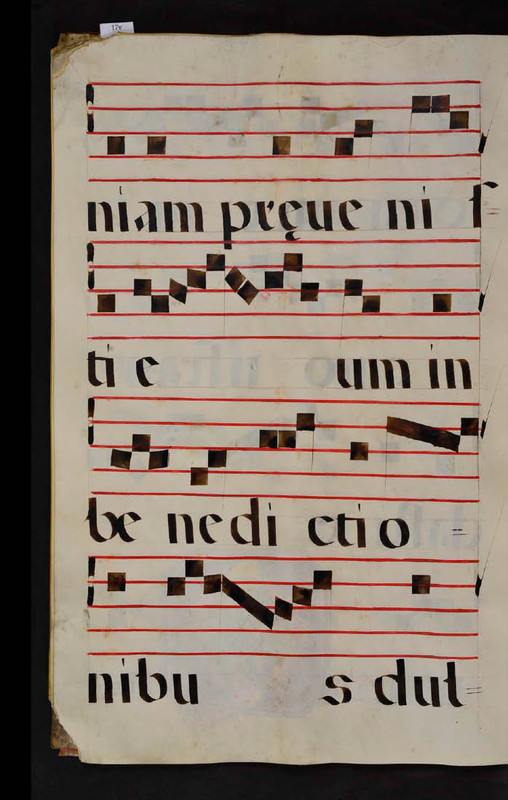 niam pręue ni s=
ti e um in
be nedi ctio =
nibu s dul=